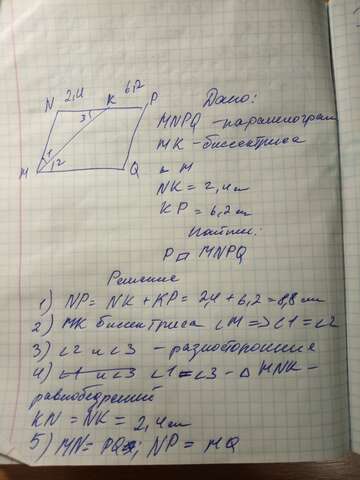 N 2,4 K 6,2 P
3
1
2
M Q
Дано:
MNPQ - параллелограм
MK - биссектриса
∠ M
NK = 2,4 см
KP = 6,2 см
Найти:
P▱ MNPQ
Решение
1) NP = NK + KP = 2,4 + 6,2 = 8,8 см
2) MK биссектриса ∠M => ∠1 = ∠2
3) ∠2 и ∠3 - разносторонние
4) ∠1 и ∠3 ∠1 = ∠3 - △ MNK -
равнобедрений
KN = NK = 2,4 см
5) MN = PQ; NP = MQ